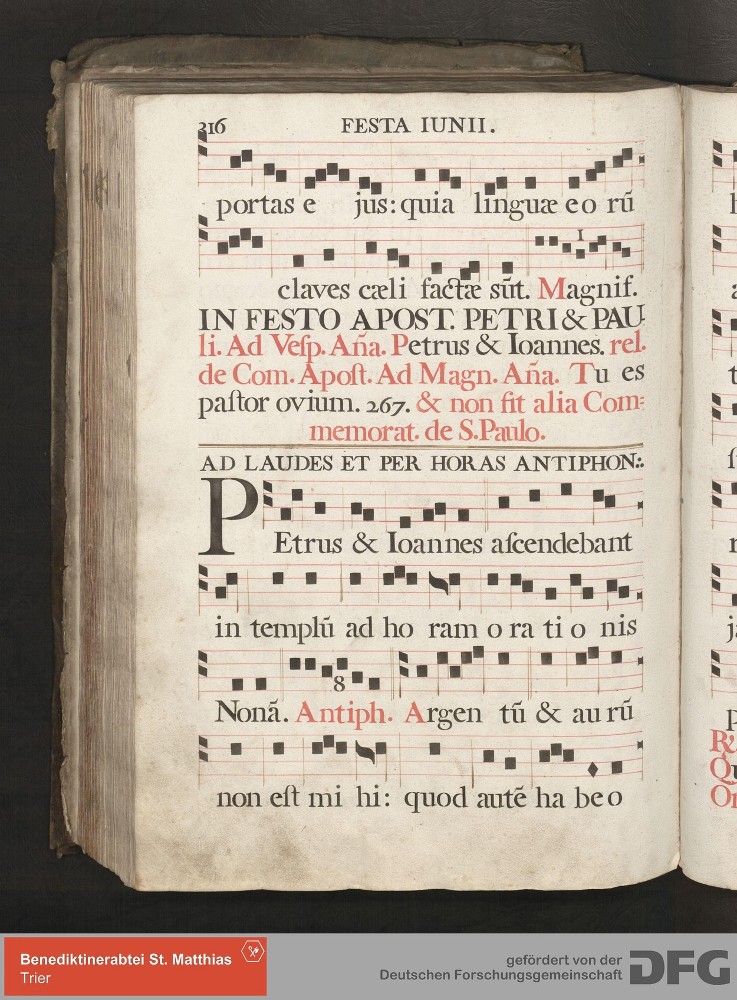 316 FESTA IUNII.
portas e jus: quia linguæ eo rũ
1
claves cæli factæ sũt. Magnif.
IN FESTO APOST. PETRI & PAU-
li. Ad Veſp. Aña. Petrus & Ioannes. rel.
de Com. Apoſt. Ad Magn. Aña. Tu es
paſtor ovium. 267. & non fit alia Com=
memorat. de S. Paulo.
AD LAUDES ET PER HORAS ANTIPHON:.
PEtrus & Ioannes aſcendebant
in templũ ad ho ram o ra ti o nis
8
Nonã. Antiph. Argen tũ & au rũ
non eſt mi hi: quod autẽ ha be o
Benediktinerabtei St. Matthias
Trier
gefördert von der
Deutschen Forschungsgemeinschaft
DFG